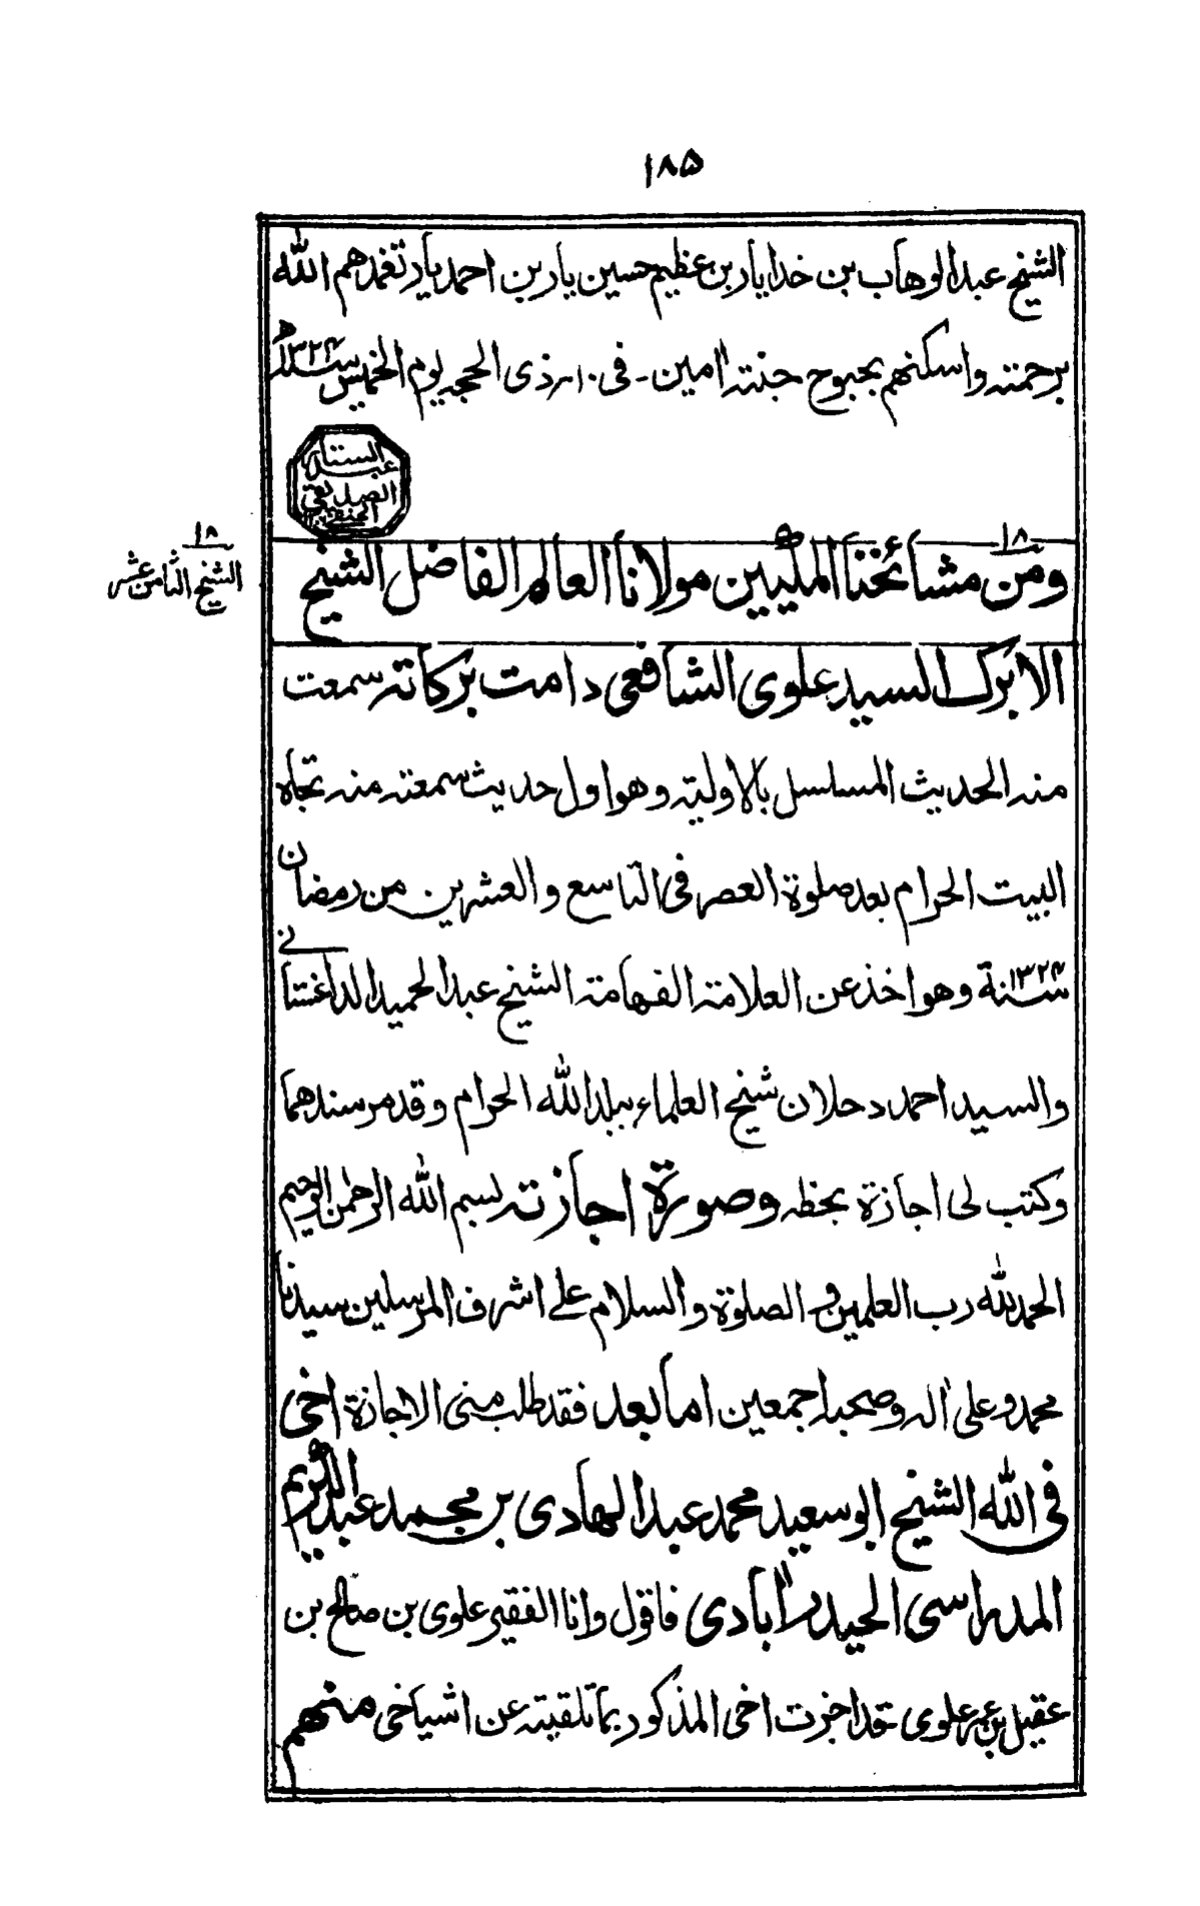 ۱۸۵
الشيخ عبدالوهاب بن خدايار بن عظيم حسين يار بن احمد يار تغمدهم الله
برحمته واسكنهم بحبوح جنته اٰمين - فى ۱۰ ذى الحجه يوم الخميس سنة ۱۳۲۴ھ
عبدالستار
الصديقى
الحنفى
۱۸
الشيخ الثامن عشر
۱۸
ومن مشائخنا المكيين مولانا العالم الفاضل الشيخ
الابرك السيد علوى الشافعى دامت بركاته سمعت
منه الحديث المسلسل بالاولية وهو اول حديث سمعته منه تجاه
البيت الحرام بعد صلوة العصر فى التاسع والعشرين من رمضان
سنة ۱۳۲۴ وهو اخذ عن العلامة الفهامة الشيخ عبدالحميد الداغستانى
والسيد احمد دحلان شيخ العلماء ببلد الله الحرام وقد مر سندهما
وكتب لى اجازة بخطه وصورة اجازته بسم الله الرحمٰن الرحيم
الحمد لله رب العلمين و الصلوة والسلام على اشرف المرسلين سيدنا
محمد وعلى اٰله وصحبه اجمعين اما بعد فقد طلب منى الاجازة اخى
فى الله الشيخ ابو سعيد محمد عبدالهادى بن محمد عبدالكريم
المدراسى الحيدراٰبادى فاقول وانا الفقير علوى بن صالح بن
عقيل بن عمر علوى قد اجزت اخى المذكور بما تلقيته عن اشياخى منهم